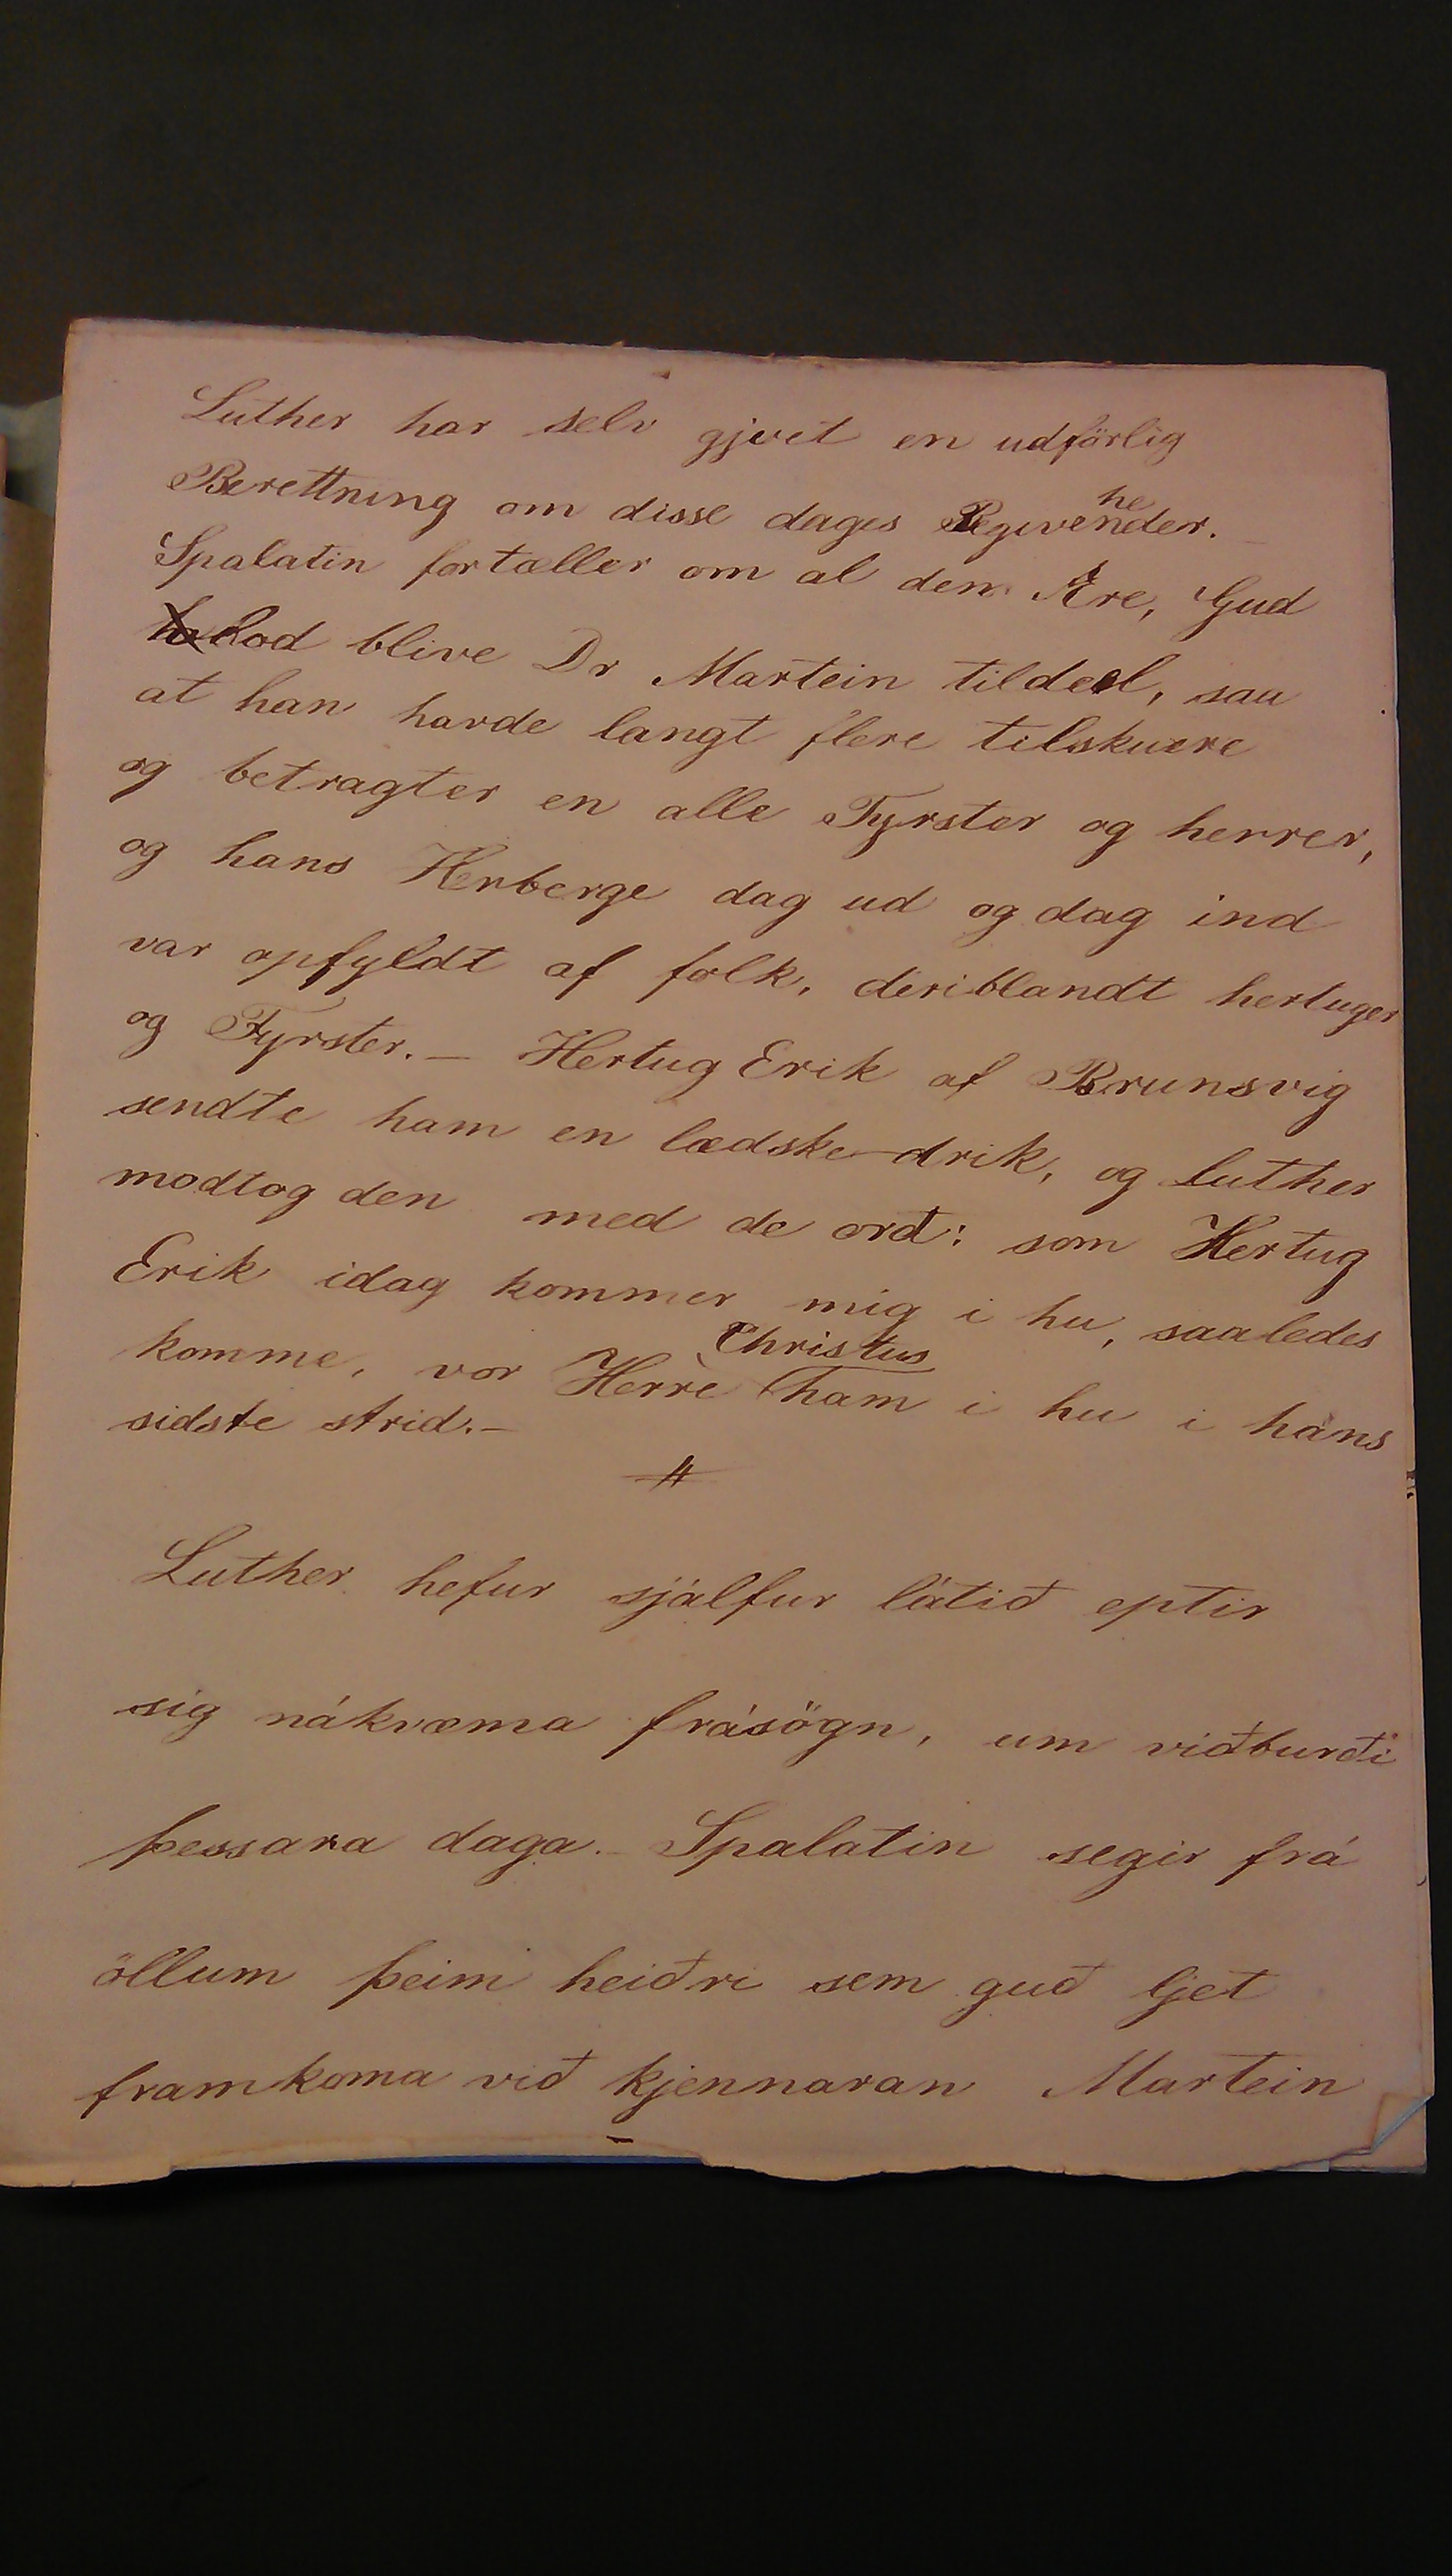 Luther har selv gjvet en udförlig
Berettning om disse dages Begivenheder.
Spalatin fortæller om al den Ære, Gud
lod blive Dr Martein tildeel, saa
at han havde langt flere tilskuere
og betragter en alle Fyrster og herrer,
og hans Herberge dag ud og dag ind
var opfyldt af folk, deriblandt hertuger
og Fyrster. — Hertug Erik af Brunsvig
sendte ham en lædske-drik, og Luther
modtog den med de ord: som Hertug
Erik idag kommer mig i hu, saaledes
komme, vor Herre Christus ham i hu i hans
sidste strid. —
Luther hefur sjálfur látið eptir
sig nákvæma frásögn, um viðburði
þessara daga. Spalatin segir frá
öllum þeim heiðri sem guð ljet
framkoma við kjennaran Martein